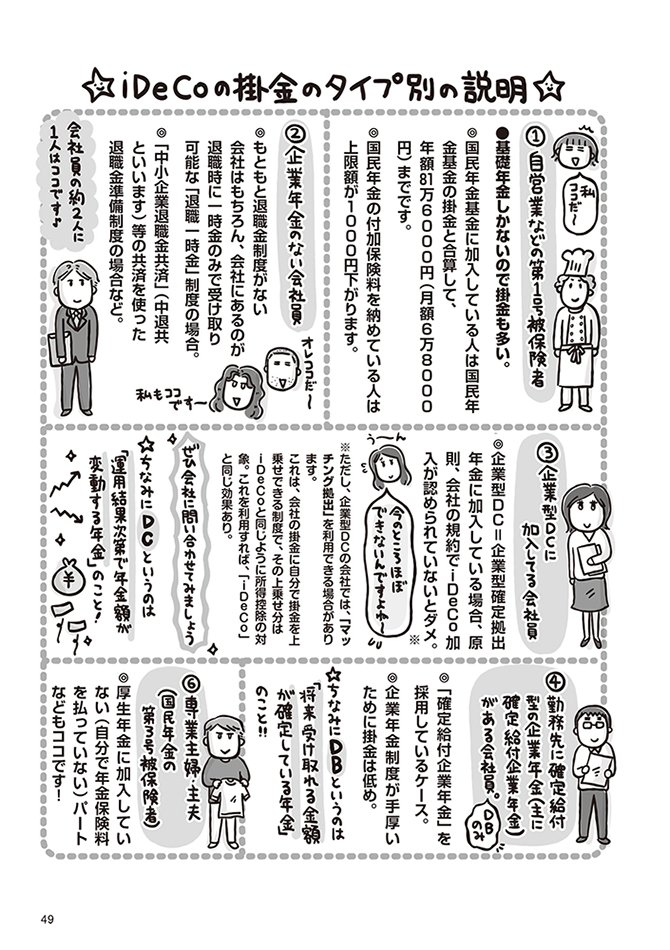 ☆iDeCoの掛金のタイプ別の説明☆
私
ココだ〜
①自営業などの第1号被保険者
●基礎年金しかないので掛金も多い。
◎国民年金基金に加入している人は国民年
金基金の掛金と合算して、
年額81万6000円(月額6万8000
円)までです。
◎国民年金の付加保険料を納めている人は
上限額が1000円下がります。
②企業年金のない会社員
◎もともと退職金制度がない
会社はもちろん、会社にあるのが
退職時に一時金のみで受け取り
可能な「退職一時金」制度の場合。
◎「中小企業退職金共済」(中退共
といいます)等の共済を使った
退職金準備制度の場合など。
オレココだ〜
私もココ
です〜
会社員の約2人に
1人はココです♪
③企業型DCに
加入してる会社員
◎企業型DC=企業型確定拠出
年金に加入している場合、原
則、会社の規約でiDeCo加
入が認められていないとダメ。※
う〜ん
今のところほぼ
できないんですよね〜
※ただし、企業型DCの会社では、「マッ
チング拠出」を利用できる場合があり
ます。
これは、会社の掛金に自分で掛金を上
乗せできる制度で、その上乗せ分は
iDeCoと同じように所得控除の対
象。これを利用すれば、「iDeCo」
と同じ効果あり。
ぜひ会社に問い合わせてみましょう
☆ちなみにDCというのは
「運用結果次第で年金額が
変動する年金」のこと!
④勤務先に確定給付
型の企業年金(主に
確定給付企業年金)
がある会社員。
DB
のみ
◎「確定給付企業年金」を
採用しているケース。
◎企業年金制度が手厚い
ために掛金は低め。
☆ちなみにDBというのは
「将来受け取れる金額
が確定している年金」
のこと!!
⑥専業主婦・主夫
(国民年金の
第3号被保険者)
◎厚生年金に加入してい
ない(自分で年金保険料
を払っていない)パート
などもココです!
49